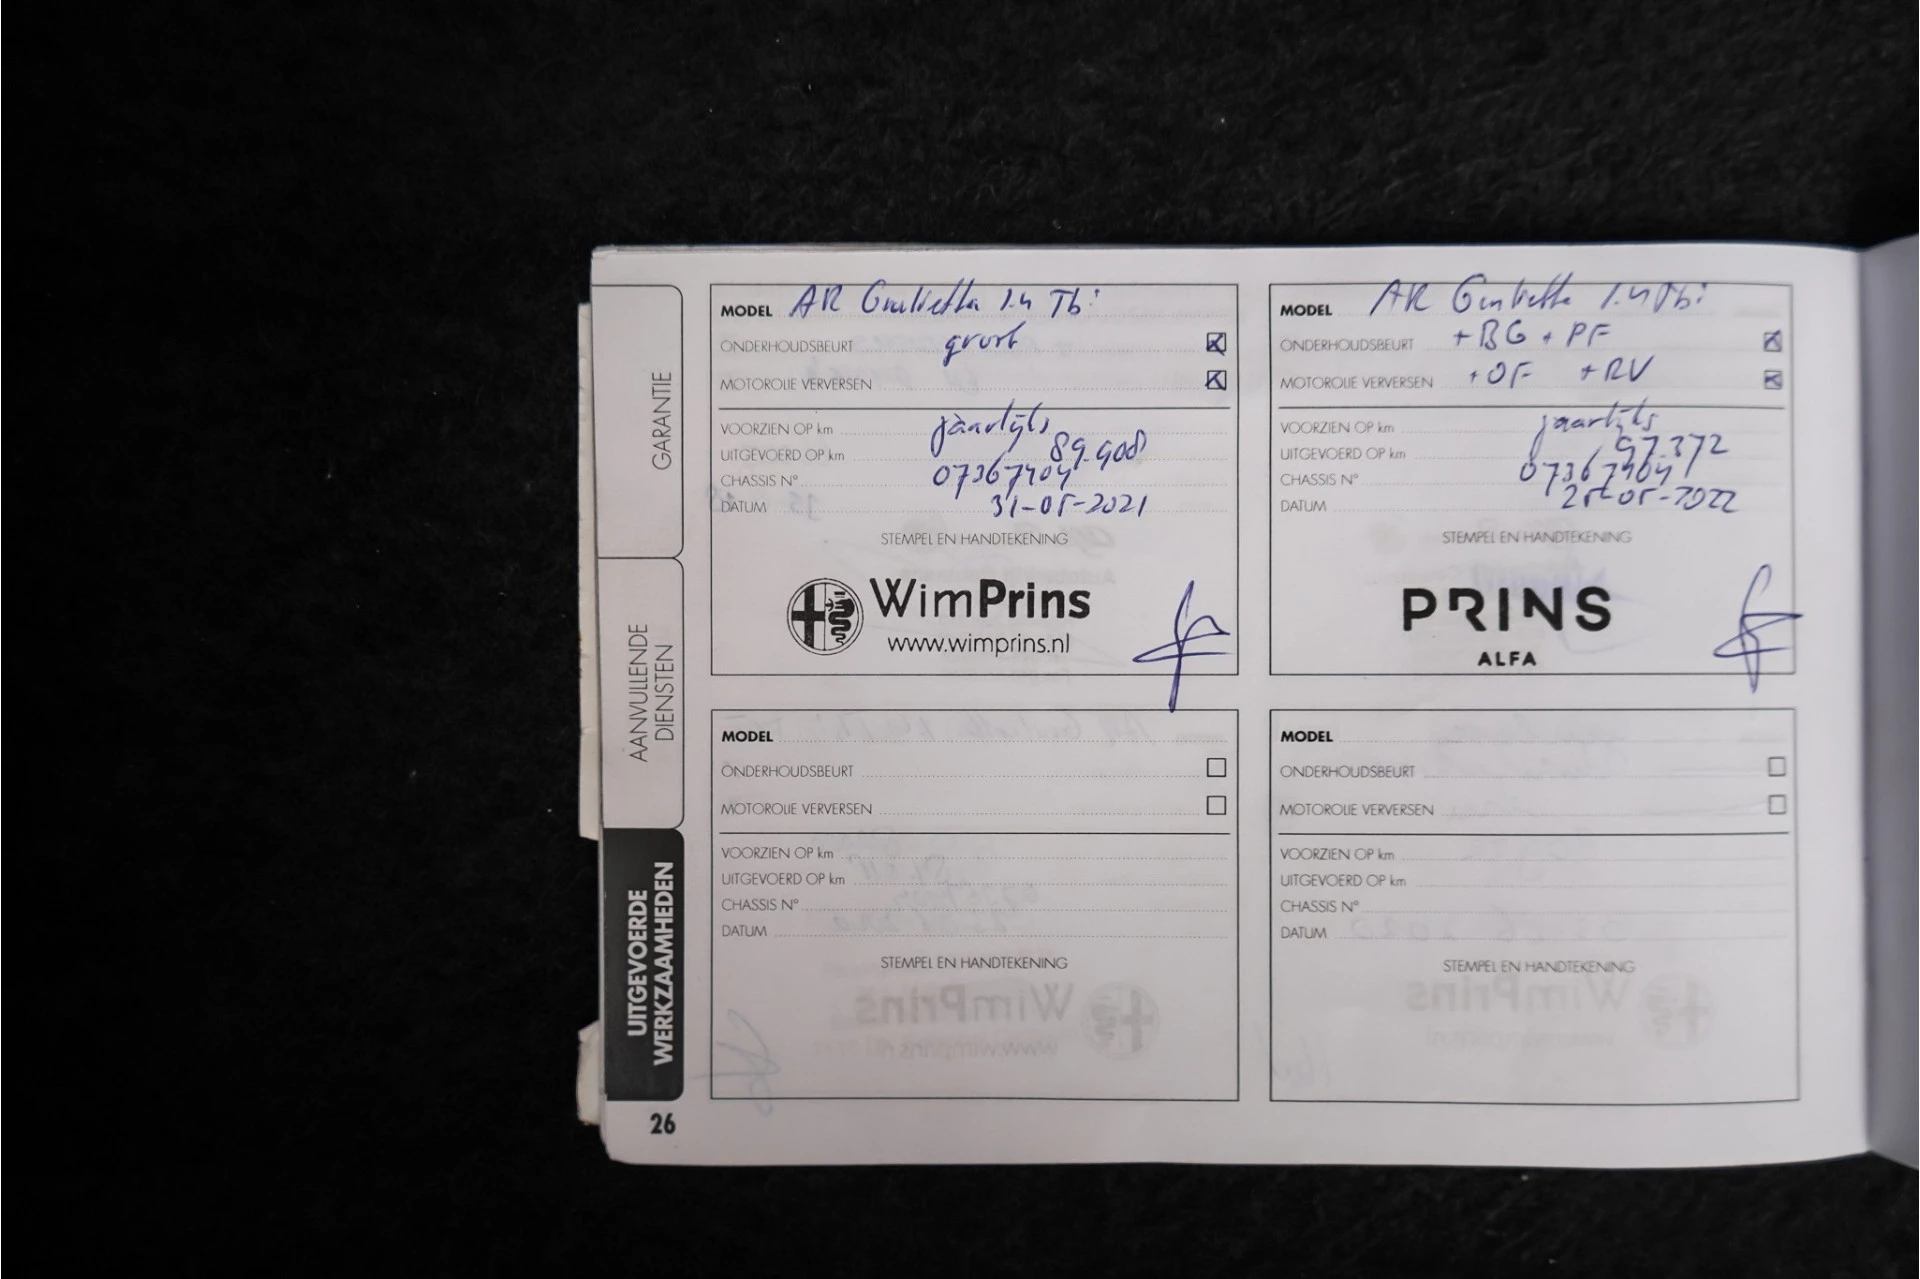 GARANTIE
AANVULLENDE
DIENSTEN
UITGEVOERDE
WERKZAAMHEDEN
26
MODEL AR Giulietta 1.4 Tbi
ONDERHOUDSBEURT groot
MOTOROLIE VERVERSEN
VOORZIEN OP km jaarlijks
UITGEVOERD OP km 89.908
CHASSIS Nº 07367404
DATUM 31-05-2021
STEMPEL EN HANDTEKENING
WimPrins
www.wimprins.nl
MODEL AR Giulietta 1.4 Tbi
ONDERHOUDSBEURT +BG + PF
MOTOROLIE VERVERSEN +OF +RV
VOORZIEN OP km jaarlijks
UITGEVOERD OP km 97.372
CHASSIS Nº 07367404
DATUM 25-05-2022
STEMPEL EN HANDTEKENING
PRINS
ALFA
MODEL
ONDERHOUDSBEURT
MOTOROLIE VERVERSEN
VOORZIEN OP km
UITGEVOERD OP km
CHASSIS Nº
DATUM
STEMPEL EN HANDTEKENING
MODEL
ONDERHOUDSBEURT
MOTOROLIE VERVERSEN
VOORZIEN OP km
UITGEVOERD OP km
CHASSIS Nº
DATUM
STEMPEL EN HANDTEKENING